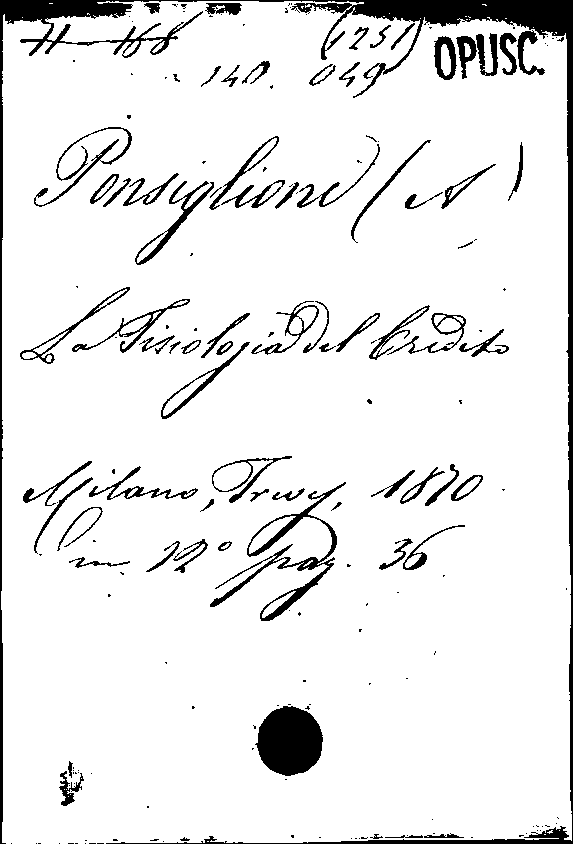 71 168 (1251) OPUSC.
140. 049
Ponsiglioni (A)
La Fisiologia del Credito
Milano, Trevy, 1870
in 12° pag. 36